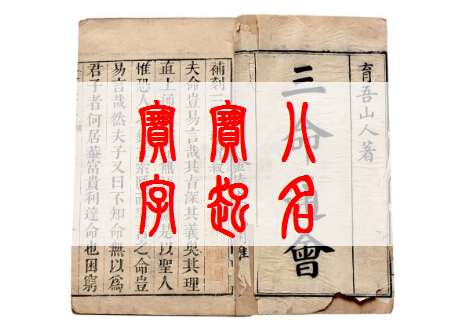 寶寶八
字起名
育吾山人著
三命通會
補刻三
夫命豈易言哉其旨深其義奧其理
是以聖人
惟恐人
之命豈
易言哉然夫子又曰不知命無以為
君子者何居蓋富貴利達命也困窮